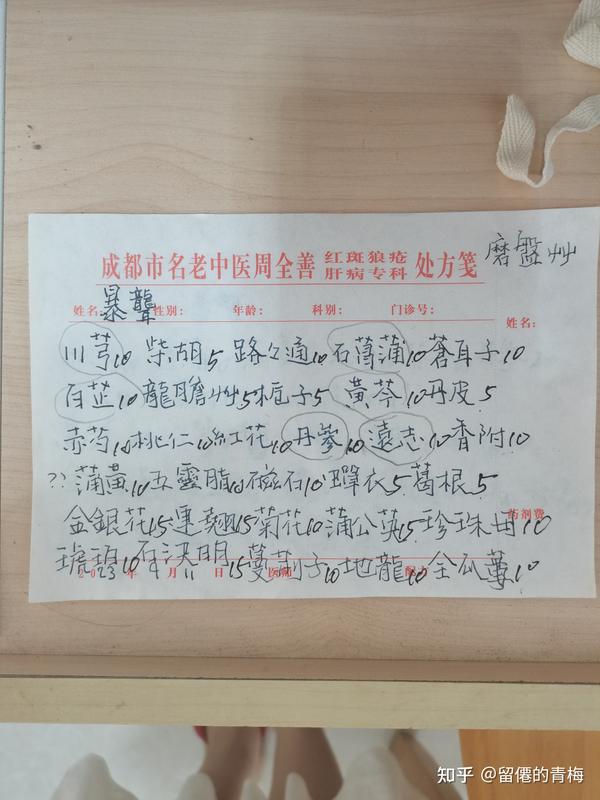 磨盤艸
成都市名老中医周全善 红斑狼疮 肝病专科 处方笺
姓名: 暴聾 性别: 年龄: 科别: 门诊号: 姓名:
川芎10 柴胡5 路々通10 石菖蒲10 蒼耳子10
白芷10 龍膽艸5 梔子5 黄芩10 丹皮5
赤芍10 桃仁10 紅花10 丹蔘10 遠志10 香附10
?? 蒲黄10 五靈脂10 磁石10 蟬衣5 葛根5
金銀花15 連翹15 菊花10 蒲公英15 珍珠母10
药剂费
琥珀10 石决明15 蔓荊子10 地龍10 全瓜蔞10
20 年 月 日 医师
知乎 @留僊的青梅